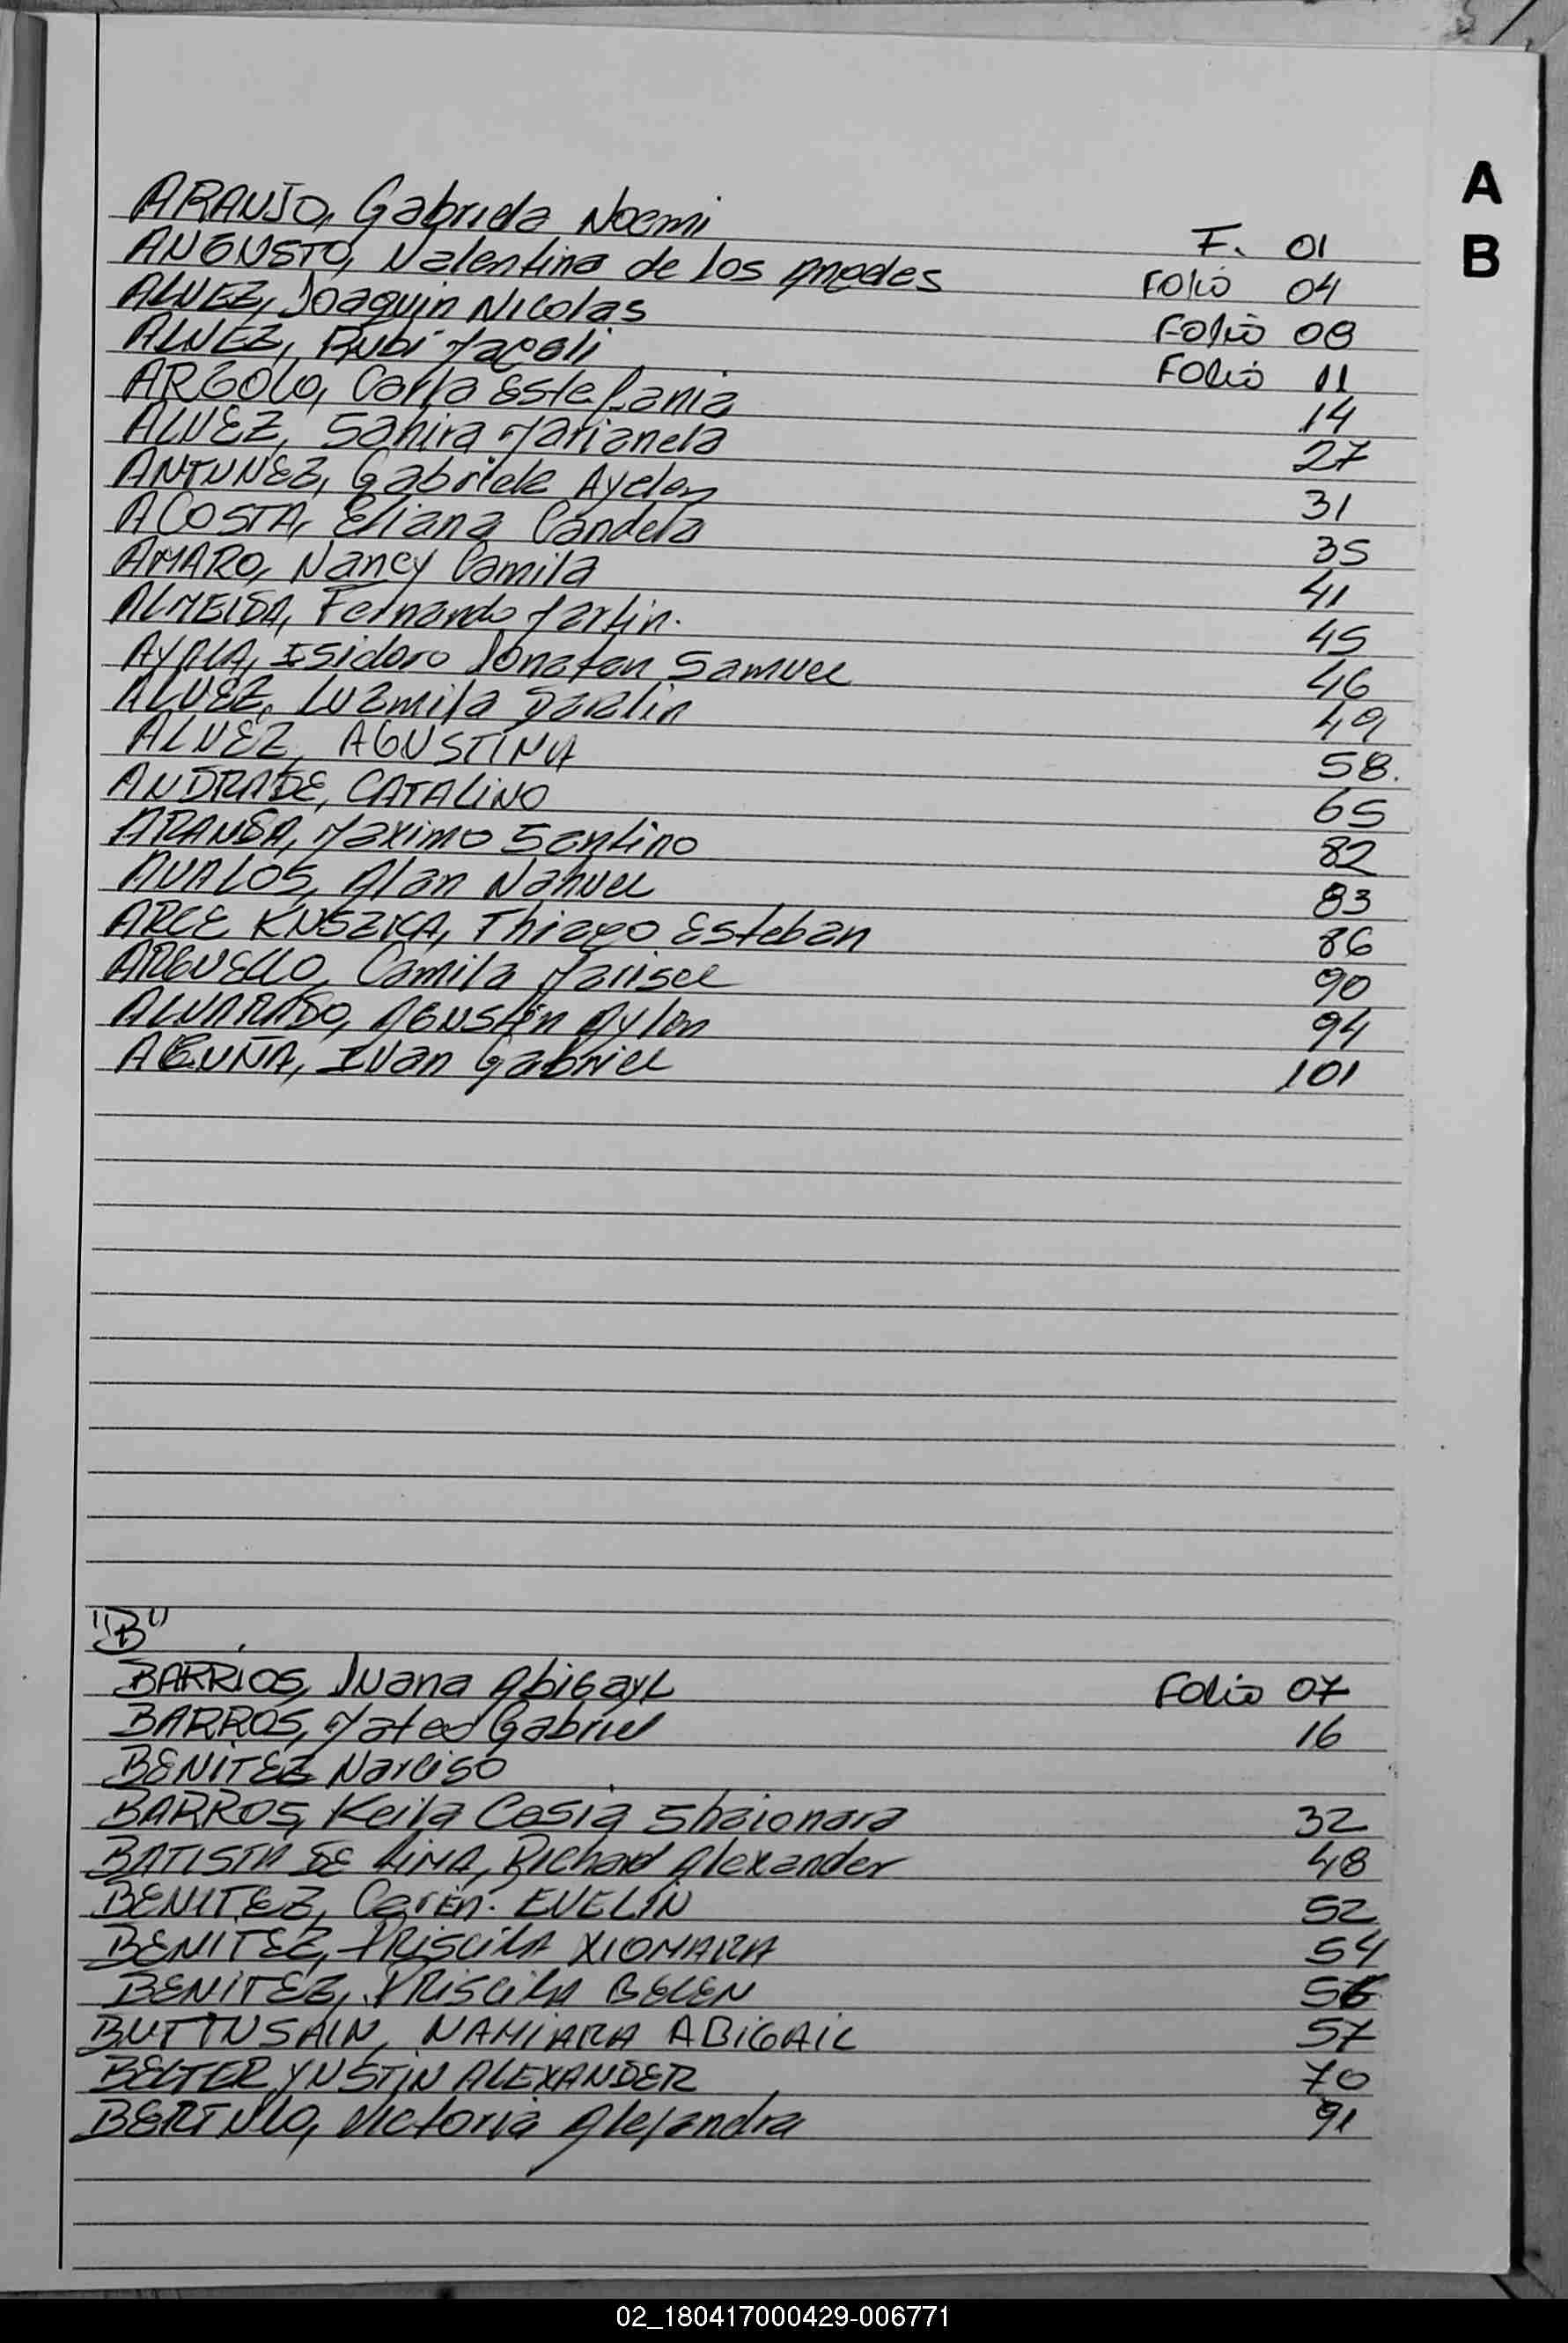 A
B
ARAUJO, Gabriela Noemi F. 01
ANGUSTO, Valentina de los Folio 04
ALVEZ, Joaquin Nicolas Folio 08
ALVEZ, Rubi Magali Folio 11
ARGOLO, Carla Estefania 14
ALVEZ, Sahira Marianela 27
ANTUNEZ, Gabriela Ayelen 31
ACOSTA, Eliana Candela 35
AMARO, Nancy Camila 41
ALMEIDA, Fernando Martin. 45
AYALA, Isidoro Jonatan Samuel 46
ALVEZ, Luzmila 49
ALVEZ, AGUSTINA 58.
ANDRADE, CATALINO 65
ARANDA, Maximo Santino 82
AVALOS, Alan Nahuel 83
ARCE KUSZKA, Thiago Esteban 86
ARGUELLO, Camila Marisel 90
ALVARADO, Agustin Aylon 94
ACUÑA, Ivan Gabriel 101
"B"
BARRIOS, Juana Abigayl Folio 07
BARROS, Mateo Gabriel 16
BENITEZ Narciso
BARROS, Keila Casia Shaionara 32
BATISTA DE LIMA, Richard Alexander 48
BENITEZ, Caren. EVELIN 52
BENITEZ, PRISCILA XIOMARA 54
BENITEZ, PRISCILA BELEN 56
NAMIARA ABIGAIL 57
BELTER YUSTIN ALEXANDER 70
Victoria Alejandra 91
02_180417000429-006771